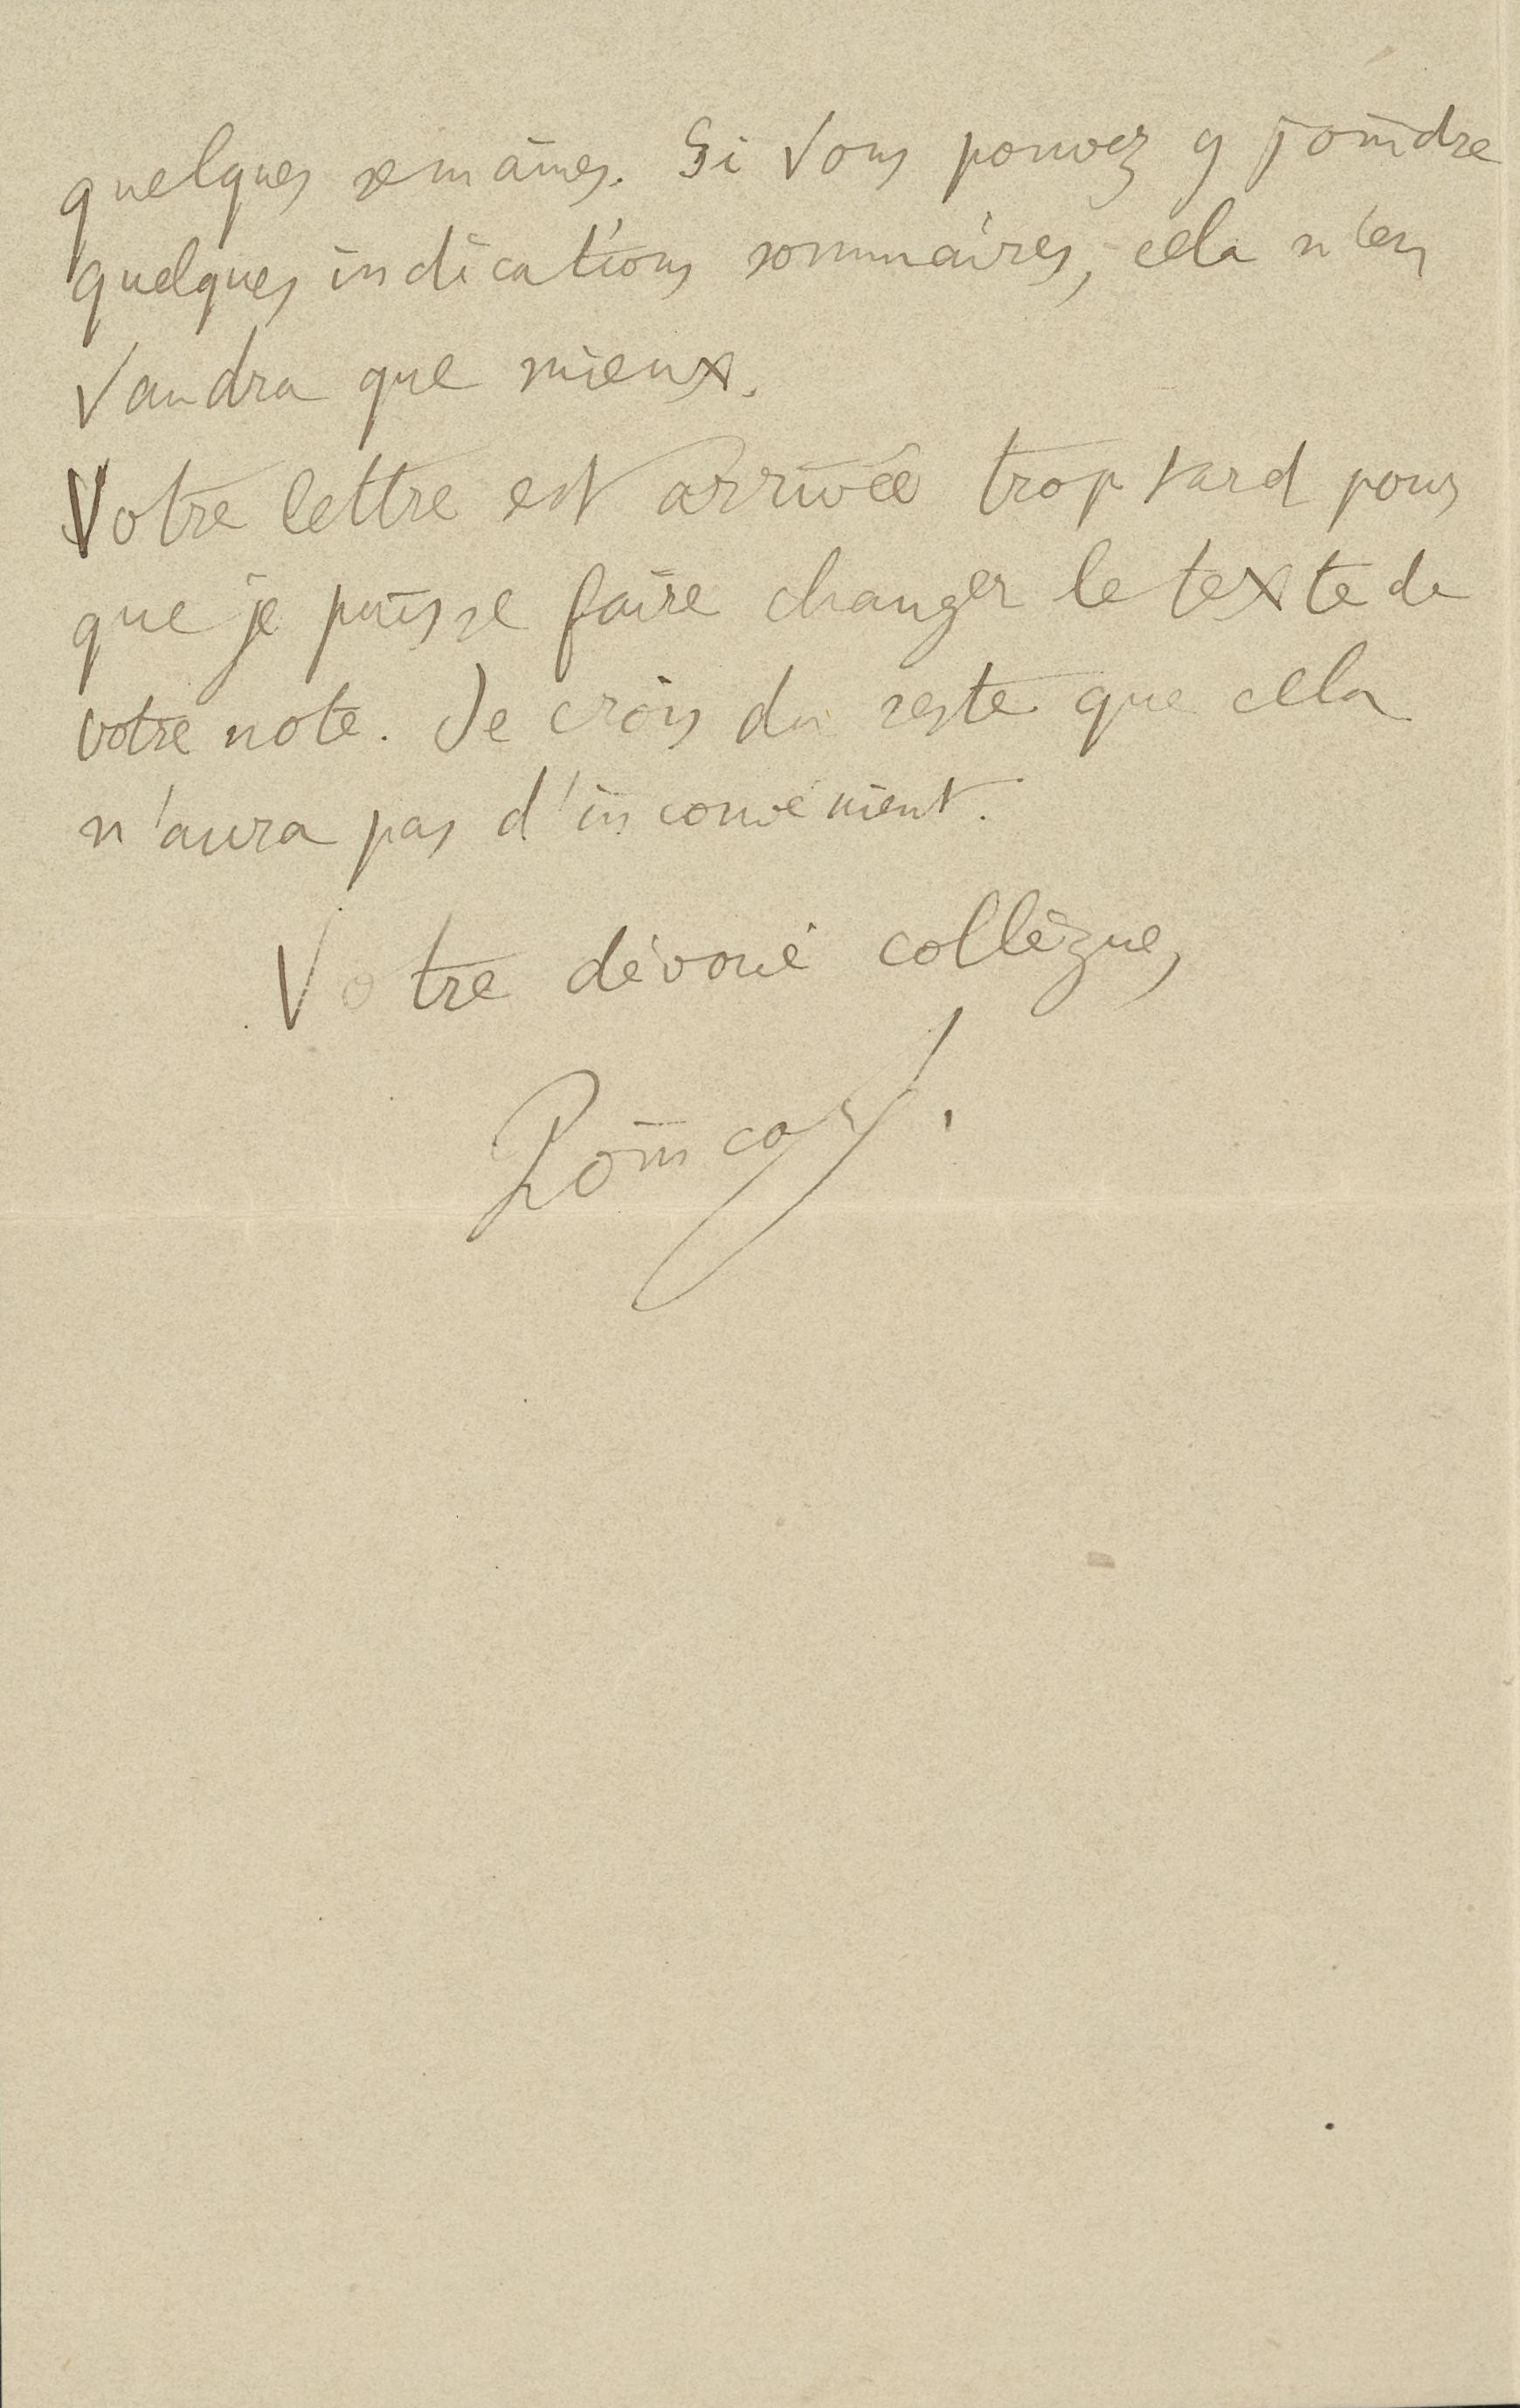 quelques semaines. Si Vous pouvez y joindre
quelques indications sommaires, cela n'en
Vaudra que mieux.
Votre lettre est arrivée trop tard pour
que je puisse faire changer le texte de
votre note. Je crois du reste que cela
n'aura pas d'inconvénient.
Votre dévoué collègue,
Poincaré.